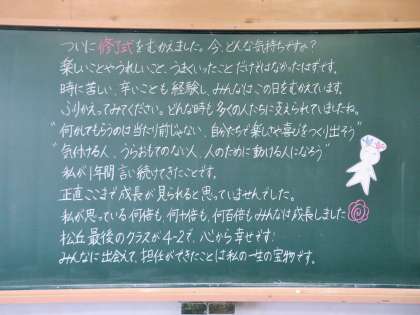 ついに修了式をむかえました。今、どんな気持ちですか？
楽しいことやうれしいこと、うまくいったことだけではなかったはずです。
時に苦しい、辛いことも経験し、みんなはこの日をむかえています。
ふりかえってみてください。どんな時も多くの人たちに支えられていましたね。
"何かをしてもらうのは当たり前じゃない、自分たちで楽しさや喜びをつくり出そう"
"気付ける人、うらおもてのない人、人のために動ける人になろう"
私が1年間言い続けてきたことです。
正直ここまで成長が見られると思っていませんでした。
私が思っている何倍も、何十倍も、何百倍もみんなは成長しました
松丘最後のクラスが4-2で、心から幸せです！
みんなに出会えて、担任ができたことは私の一生の宝物です。